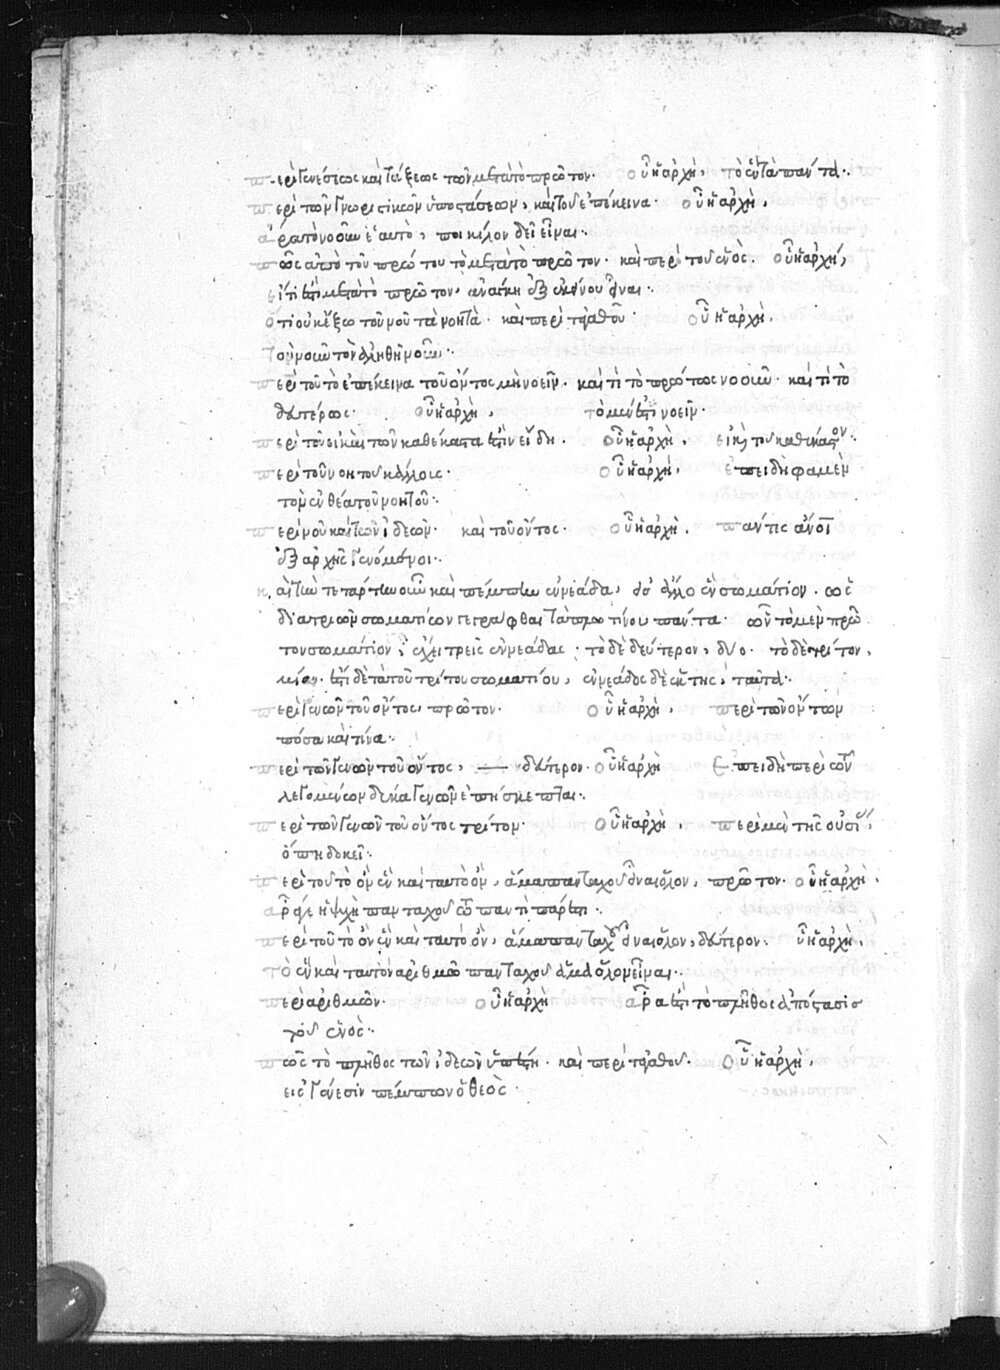 περὶ γενέσεως καὶ τάξεως τῶν μετὰ τὸ πρῶτον· οὗ ἡ ἀρχή, τὸ ἓν τὰ πάντα·
περὶ τῶν γνωριστικῶν ὑποστάσεων, καὶ τοῦ ἐπέκεινα· οὗ ἡ ἀρχή,
ἆρα τὸ νοοῦν ἑαυτὸ, ποικίλον δεῖ εἶναι·
πῶς ἀπὸ τοῦ πρώτου τὸ μετὰ τὸ πρῶτον· καὶ περὶ τοῦ ἑνὸς· οὗ ἡ ἀρχή,
εἴ τι ἐστὶ μετὰ τὸ πρῶτον, ἀνάγκη ἐξ ἐκείνου εἶναι·
ὅτι οὐκ ἔξω τοῦ νοῦ τὰ νοητὰ· καὶ περὶ τἀγαθοῦ· οὗ ἡ ἀρχή,
τὸν νοῦν τὸν ἀληθῆ νοῦν·
περὶ τοῦ τὸ ἐπέκεινα τοῦ ὄντος μὴ νοεῖν· καὶ τί τὸ πρώτως νοοῦν· καὶ τί τὸ
δευτέρως· οὗ ἡ ἀρχή, τὸ μέν ἐστι νοεῖν·
περὶ τοῦ εἰ καὶ τῶν καθέκαστά ἐστιν εἴδη· οὗ ἡ ἀρχή, εἰ καὶ τοῦ καθέκαστον·
περὶ τοῦ νοητοῦ κάλλους· οὗ ἡ ἀρχή, ἐπειδὴ φαμὲν
τὸν ἐν θέᾳ τοῦ νοητοῦ·
περὶ νοῦ καὶ τῶν ἰδεῶν· καὶ τοῦ ὄντος· οὗ ἡ ἀρχή, πάντες ἄνοι
ἐξ ἀρχῆς γενόμενοι·
καὶ τὴν τετάρτην οὖν καὶ πέμπτην ἐννεάδα, εἰς ἄλλο ἓν σωμάτιον· ὡς
διὰ τριῶν σωματίων γεγράφθαι τὰ πλωτίνου πάντα· ὧν τὸ μὲν πρῶ
τον σωμάτιον, ἔχει τρεῖς ἐννεάδας· τὸ δὲ δεύτερον, δύο· τὸ δὲ τρίτον,
μίαν· ἔστι δὲ τὰ τοῦ τρίτου σωματίου, ἐννεάδος δὲ ἕκτης, ταῦτα·
περὶ γενῶν τοῦ ὄντος, πρῶτον· οὗ ἡ ἀρχή, περὶ τῶν ὄντων
πόσα καὶ τίνα·
περὶ τῶν γενῶν τοῦ ὄντος, — δεύτερον· οὗ ἡ ἀρχή ἐπειδὴ περὶ τῶν
λεγομένων δέκα γενῶν ἐπέσκεπται·
περὶ τῶν γενῶν τοῦ ὄντος τρίτον· οὗ ἡ ἀρχή, περὶ μὲν τῆς οὐσίας,
ὅπη δοκεῖ·
περὶ τοῦ τὸ ὂν ἓν καὶ ταυτὸ ὂν, ἅμα πανταχοῦ εἶναι ὅλον, πρῶτον· οὗ ἡ ἀρχή,
ἆρά γε ἡ ψυχὴ πανταχοῦ τῷ παντὶ πάρεστι·
περὶ τοῦ τὸ ὂν ἓν καὶ ταυτὸ ὂν, ἅμα πανταχοῦ εἶναι ὅλον, δεύτερον· οὗ ἡ ἀρχή,
τὸ ἓν καὶ ταυτὸν ἀριθμῷ πανταχοῦ ἅμα ὅλον εἶναι·
περὶ ἀριθμῶν· οὗ ἡ ἀρχή ἆρα ἐστὶ τὸ πλῆθος ἀπόστασις
τοῦ ἑνὸς·
πῶς τὸ πλῆθος τῶν ἰδεῶν ὑπέστη· καὶ περὶ τἀγαθοῦ· οὗ ἡ ἀρχή,
εἰς γένεσιν πέμπων ὁ θεὸς·